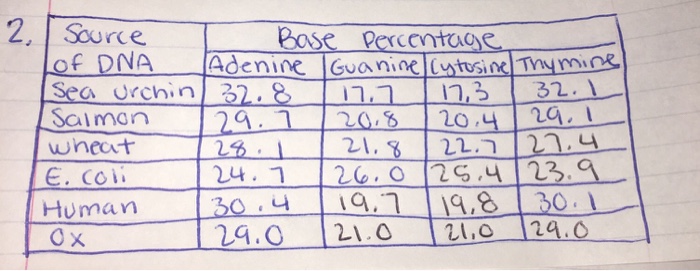 2. Source of DNA Base Percentage
Adenine Guanine Cytosine Thymine
Sea urchin 32.8 17.7 17.3 32.1
Salmon 29.7 20.8 20.4 29.1
wheat 28.1 21.8 22.7 27.4
E. coli 24.7 26.0 25.4 23.9
Human 30.4 19.7 19.8 30.1
Ox 29.0 21.0 21.0 29.0